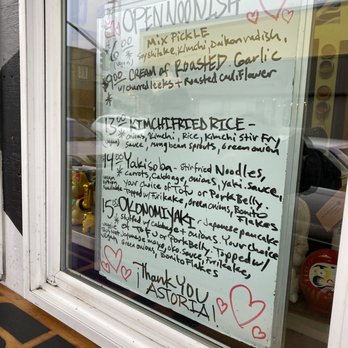 OPEN NOONISH
MIX PICKLE
Soy shitake, Kimchi, Daikon radish,
9.00 CREAM of ROASTED Garlic
w/ charred leeks + Roasted Cauliflower
13.00 KIMCHI FRIED RICE -
onions, Kimchi, Rice, Kimchi Stir Fry
sauce, mung bean sprouts, Green onion
14.00 Yakisoba - Stir fried Noodles,
carrots, Cabbage, onions, yaki sauce,
your choice of Tofu or Pork Belly
Topped w/ Furikake, Green onions, Bonito
Flakes
15.00 OKONOMIYAKI - Japanese pancake
stuffed w/ cabbage + onions. Your choice
of Tofu or Pork Belly. Topped w/
Japanese mayo, oko sauce, Furikake,
Green onions, Bonito Flakes
¡Thank YOU
ASTORIA!